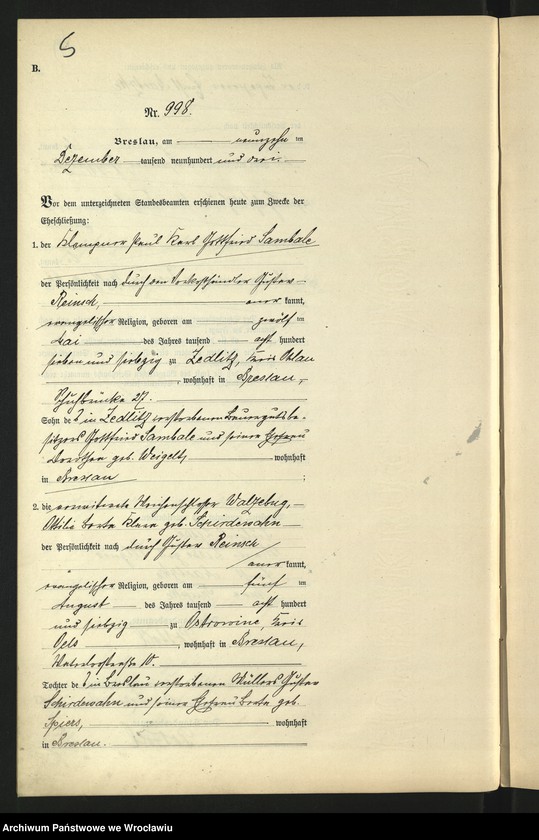 B.
Nr. 998.
Breslau, am neunzehn ten
Dezember tausend neunhundert und drei.
Vor dem unterzeichneten Standesbeamten erschienen heute zum Zwecke der
Eheschließung:
1. der Klempner Paul Karl Gottfried Sambale
der Persönlichkeit nach durch den Gustav
Reinsch, aner kannt,
evangelischer Religion, geboren am zwölf ten
Mai des Jahres tausend acht hundert
sieben und siebzig zu Zedlitz, Kreis Ohlau
, wohnhaft in Breslau,
Schuhbrücke 27.
Sohn des in Zedlitz verstorbenen Bauergutsbe-
sitzers Gottfried Sambale und seiner Ehefrau
geb. Weigelt, wohnhaft
in Breslau ;
2. die verwitwete
Ottilie geb. Schirdewahn
der Persönlichkeit nach durch Gustav Reinsch
aner kannt,
evangelischer Religion, geboren am fünf ten
August des Jahres tausend acht hundert
und siebzig zu Ostrowine, Kreis
Oels, wohnhaft in Breslau,
10.
Tochter des in Breslau verstorbenen Müllers Gustav
Schirdewahn und seiner Ehefrau geb.
wohnhaft
in Breslau.
Archiwum Państwowe we Wrocławiu